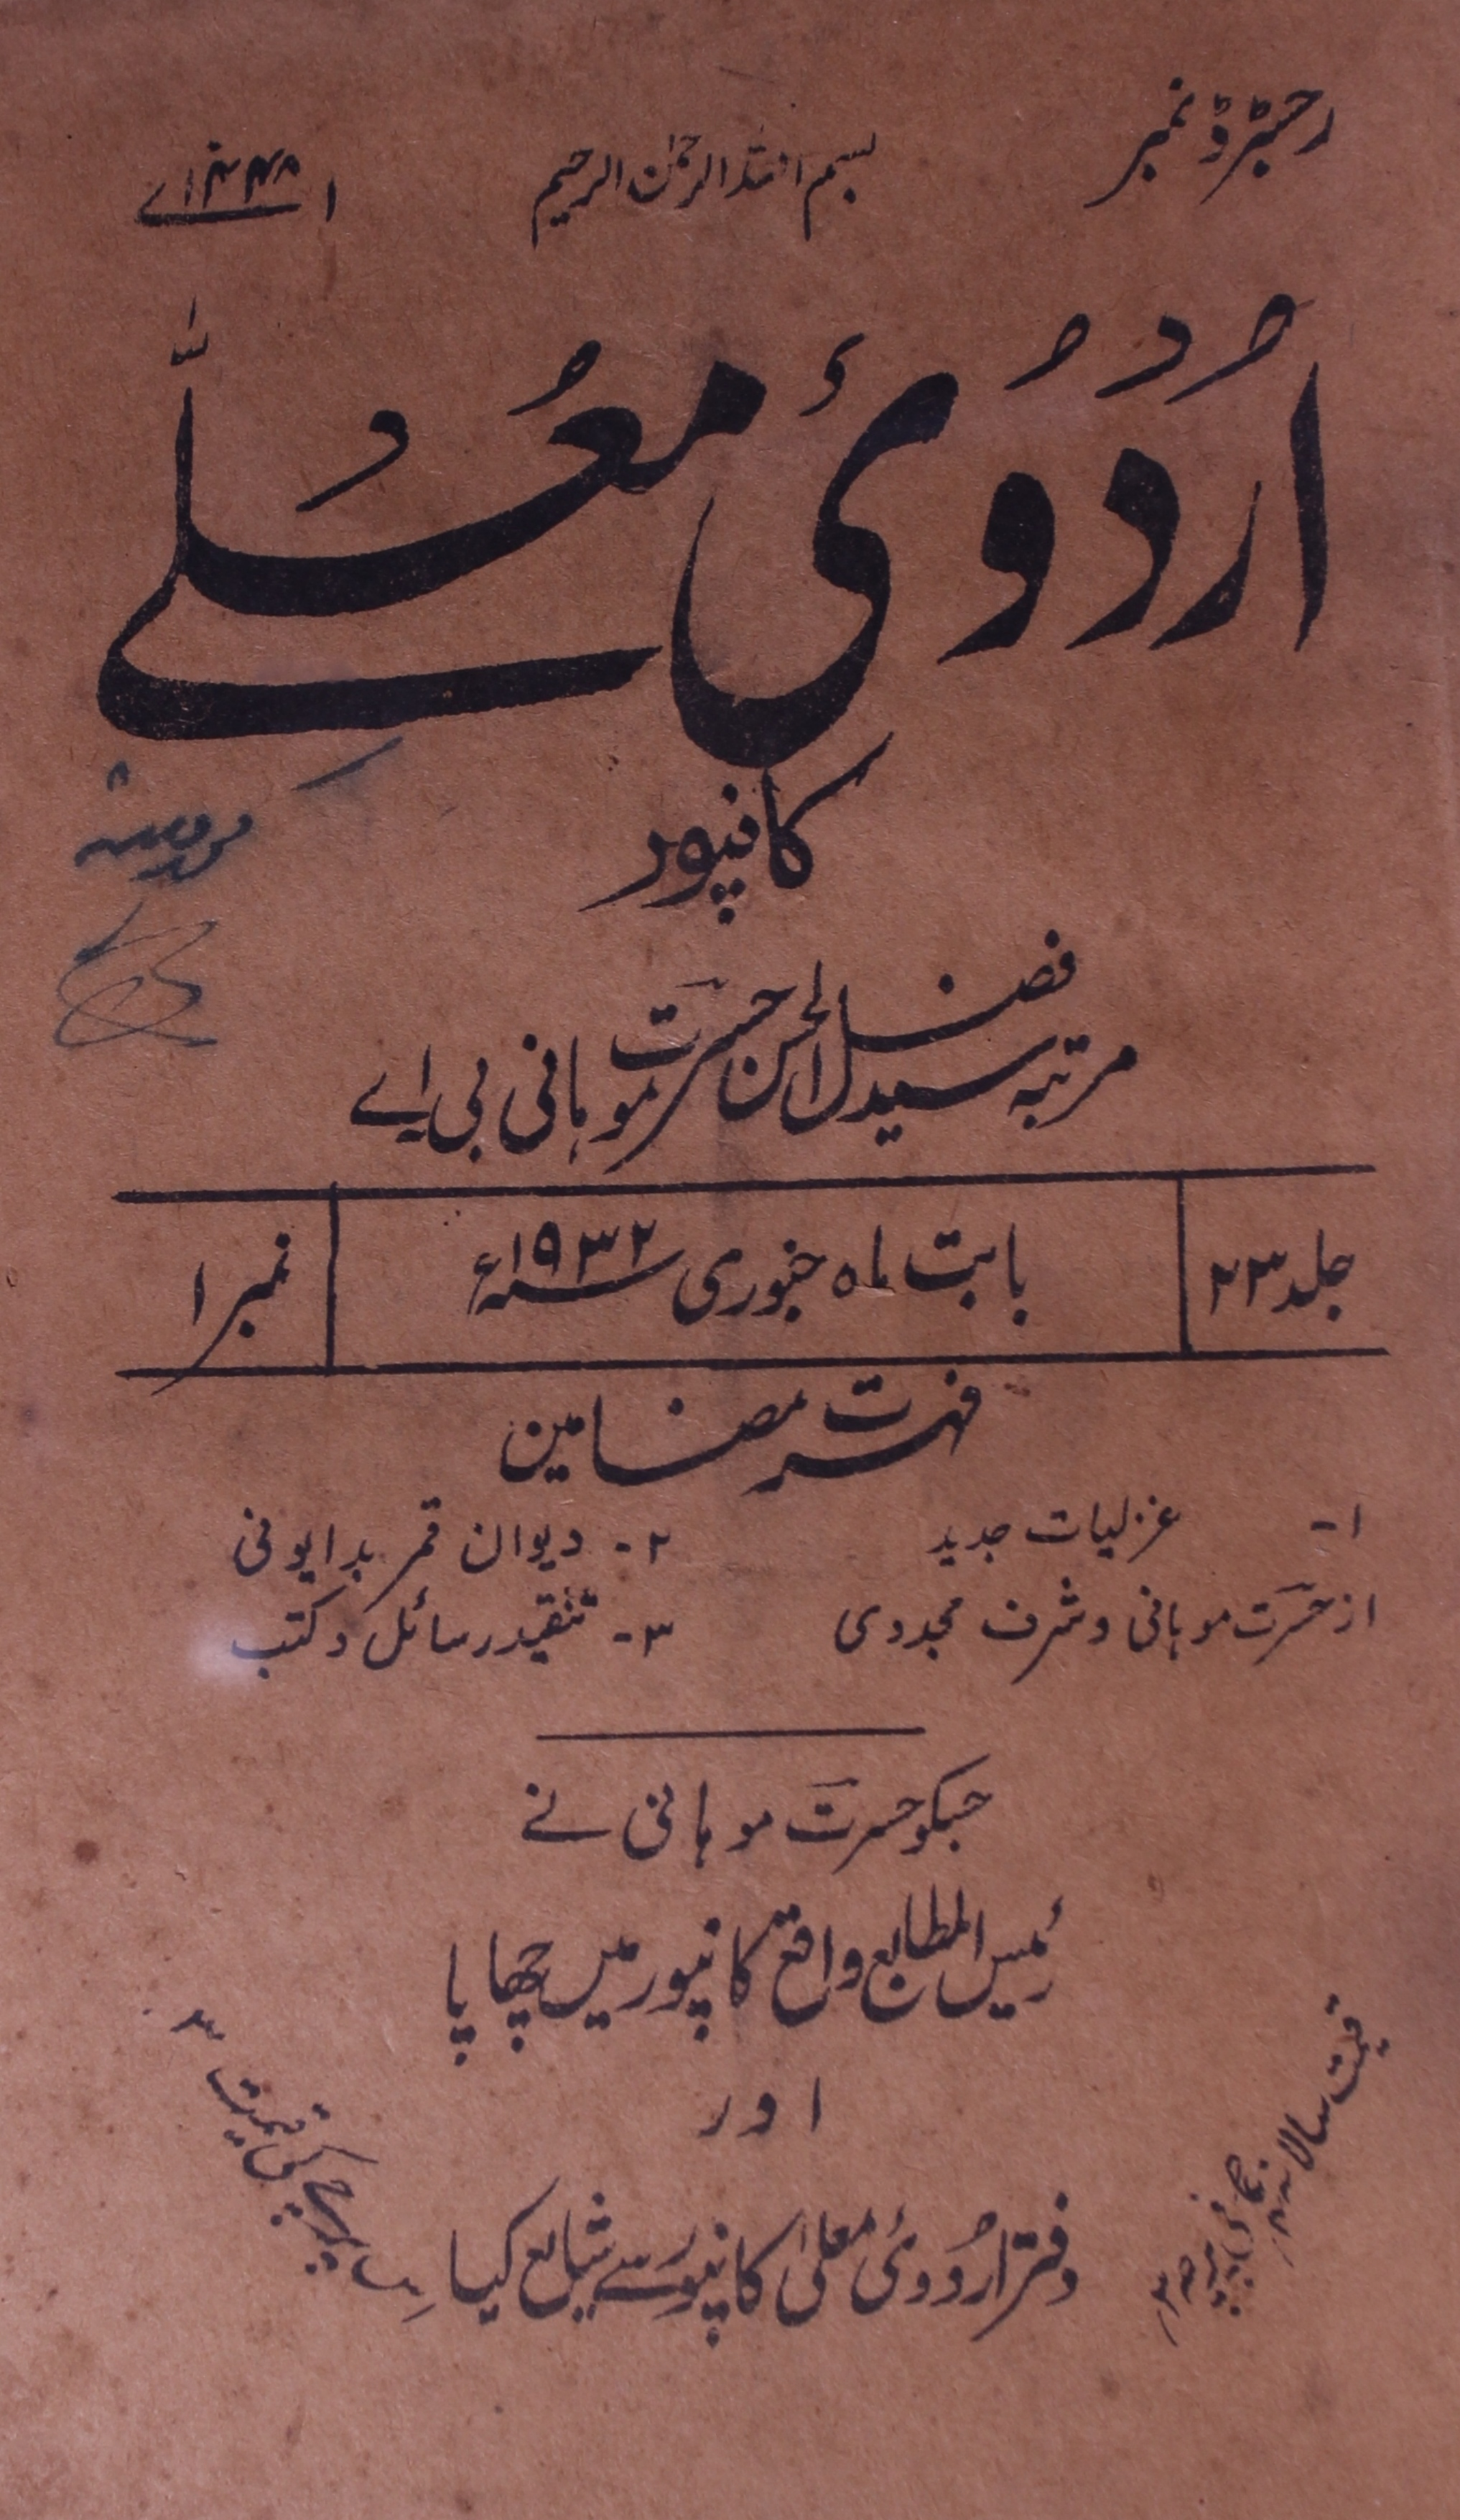 رجسٹرڈ نمبر
بسم اللہ الرحمٰن الرحیم
اُردُوئ معُلّے
کانپور
مرتبہ سید فضل الحسن حسرت موہانی بی اے
جلد ۲۳
بابت ماہ جنوری ۱۹۳۲ء
نمبر ۱
فہرست مضامین
۱- غزلیات جدید
از حسرت موہانی و شرف مجددی
۲- دیوان قمر بدایونی
۳- تنقید رسائل و کتب
جسکو حسرت موہانی نے
رئیس المطابع واقع کانپور میں چھاپا
اور
دفتر اردوئ معلیٰ کانپور سے شایع کیا
قیمت سالانہ
پرچے کی قیمت